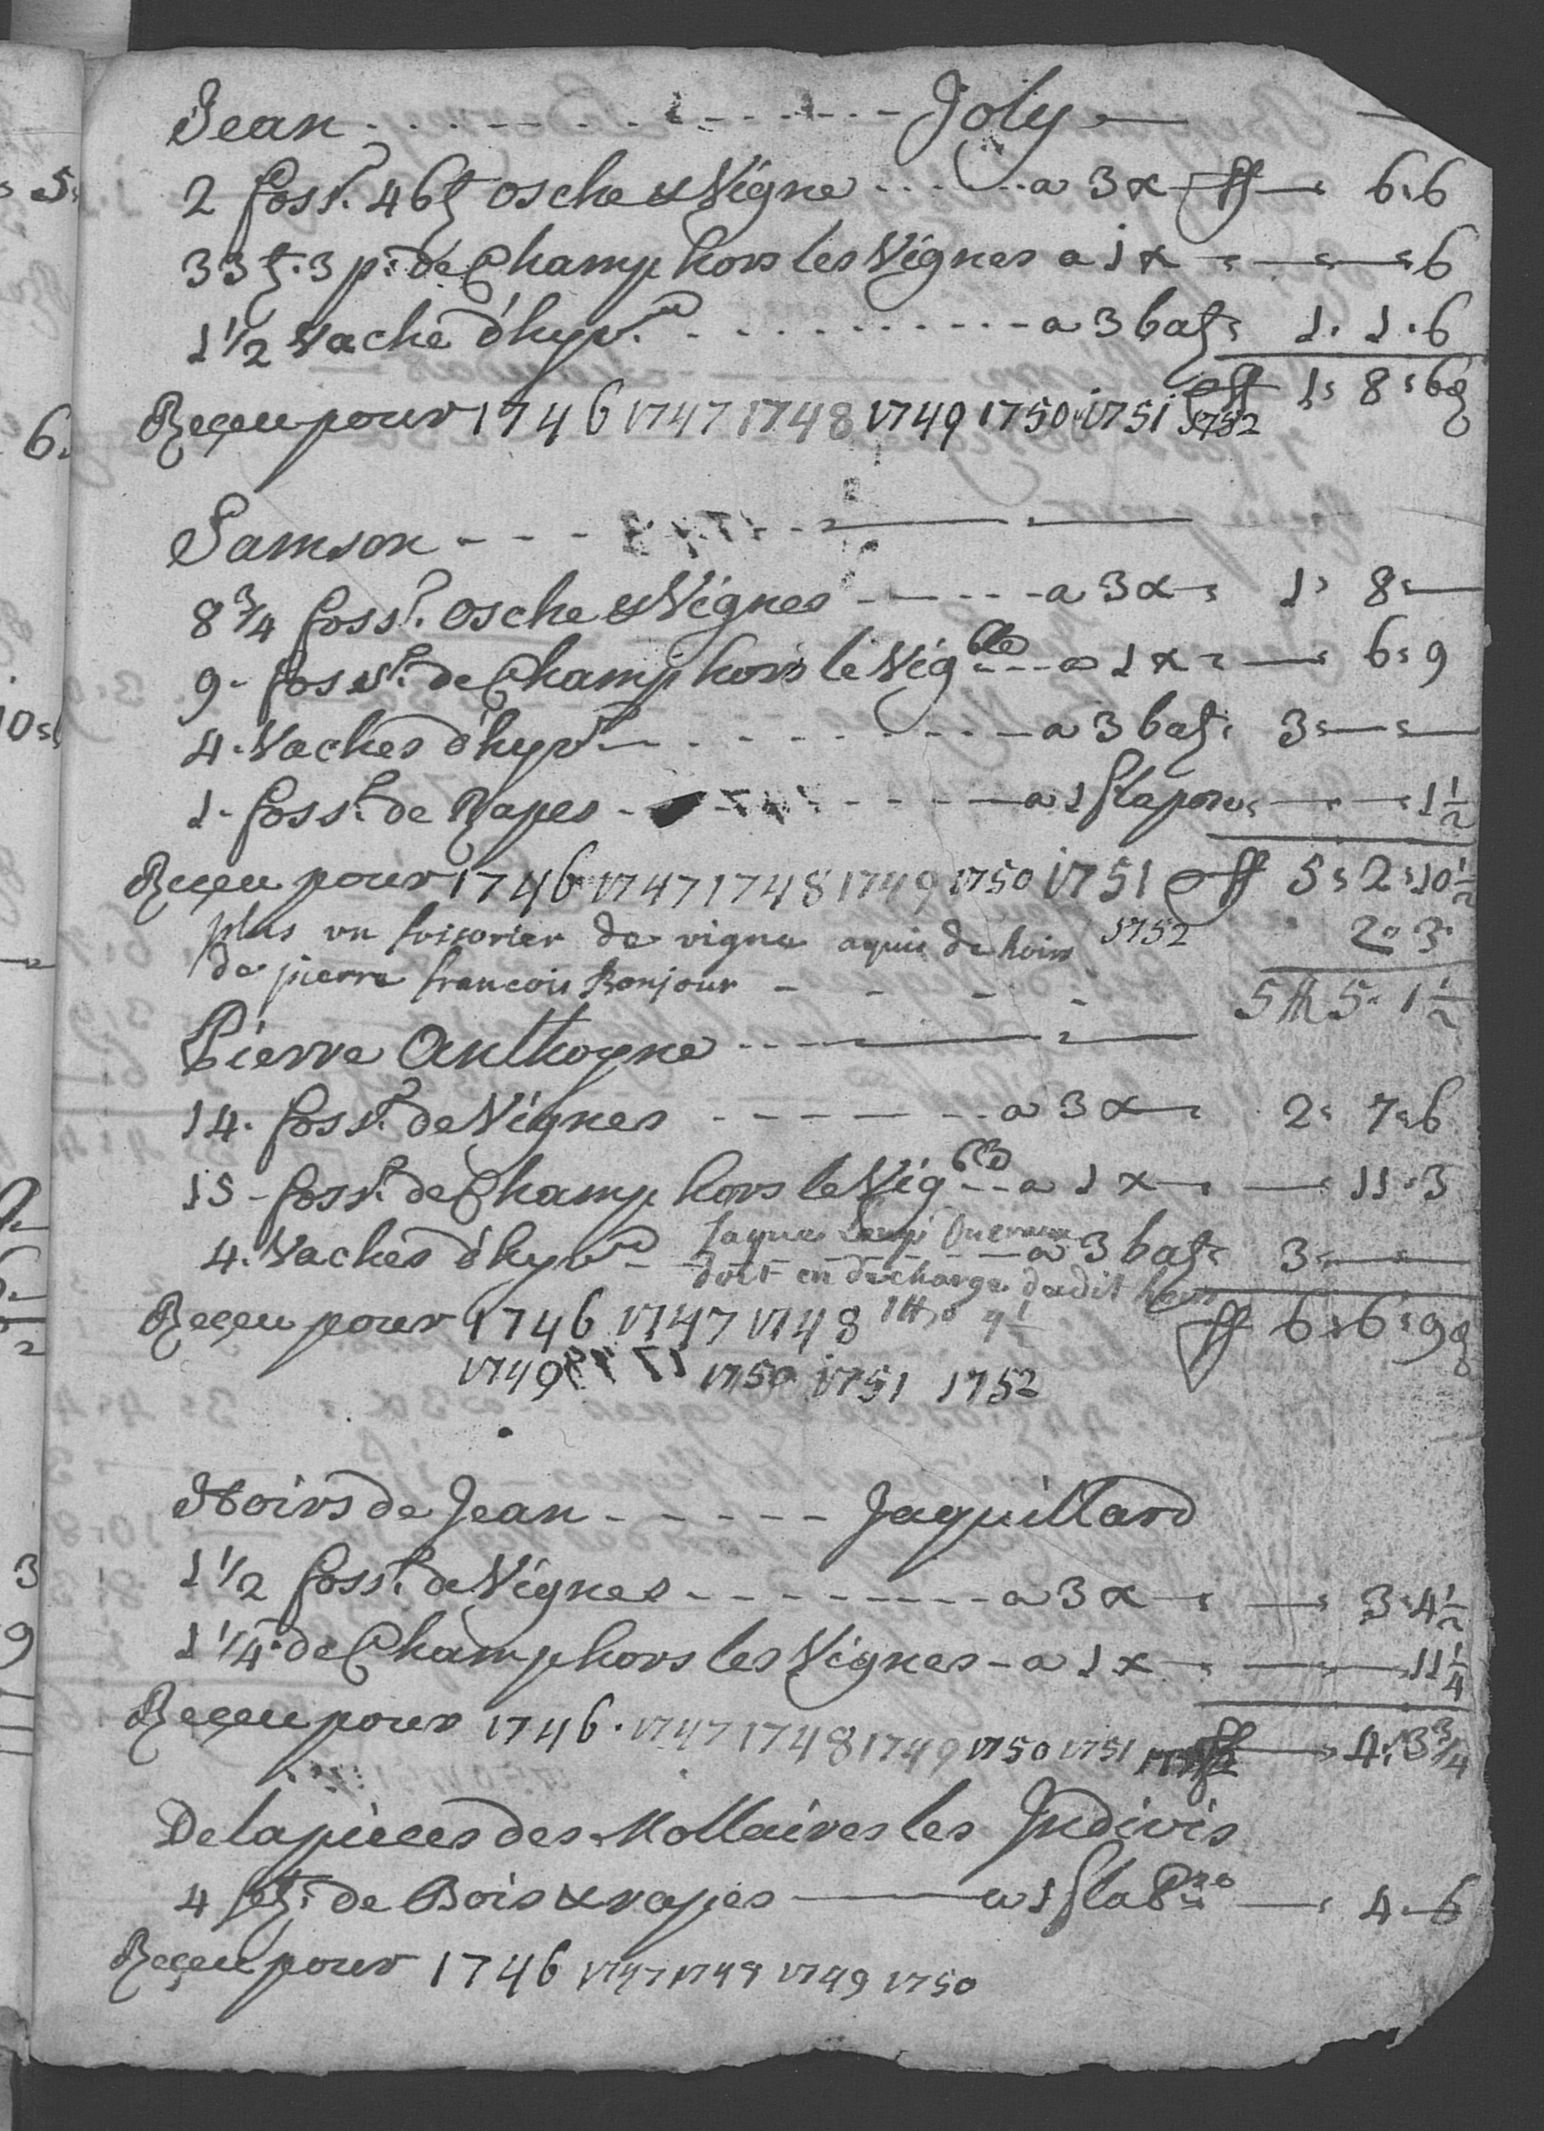 Jean - - - - - - - - - - Joly
2 foss.r 46 t. osche & Vigne - - - a 3 x ff — 6 " 6
33 t. 3 p.s de Champ hors les Vignes a 1 x " — " — " 6
1 1/2 Vache d'hyv. - - - - - - a 3 batz " 1 " 1 " 6
ff 1 " 8 " 6 8
Reçeu pour 1746 1747 1748 1749 1750 1751 1752
Samson - - - -
8 3/4 foss.r osche & Vignes - - - - a 3 x " 1 " 8 " —
9 - foss.r de Champ hors le Vig.ble - - a 1 x " — " 6 " 9
4 - Vaches d'hyv.r - - - - - - a 3 batz " 3 " — " —
1 - foss.r de Rapes - - - - - - a 1 fla pone " — " — " 1 1/2
Reçeu pour 1746 1747 1748 1749 1750 1751 ff 5 " 2 " 10 1/2
plus un fossorier de vigne aquis de hoirs 1752 2 " 3
de pierre francois Bonjour - - - - 5 ff 5 " 1 1/2
Pierre Anthoyne - - -
14 - foss.r de Vignes - - - - - a 3 x " 2 " 7 " 6
15 - foss.r de Champ hors le Vig.ble - - a 1 x " — " 11 " 3
Jaques
4 - Vaches d'hyv. - - - a 3 batz " 3 " — " —
doit en decharge dudit hoirs
Reçeu pour 1746 1747 1748 ff 6 " 6 " 9 8
1749 1750 1751 1752
Hoirs de Jean - - - - - Jaquillard
1 1/2 foss.r de Vignes - - - - - - a 3 x " — " 3 " 4 1/2
1 1/4 - de Champ hors les Vignes - a 1 x " — — 11 1/4
Reçeu pour 1746 - 1747 1748 1749 1750 1751 ff — " 4 " 3 3/4
De la pieces des Mollaires les Indivis
4 de Bois & rapes — a 1 fla — " 4 " 6
Reçeu pour 1746 1747 1748 1749 1750